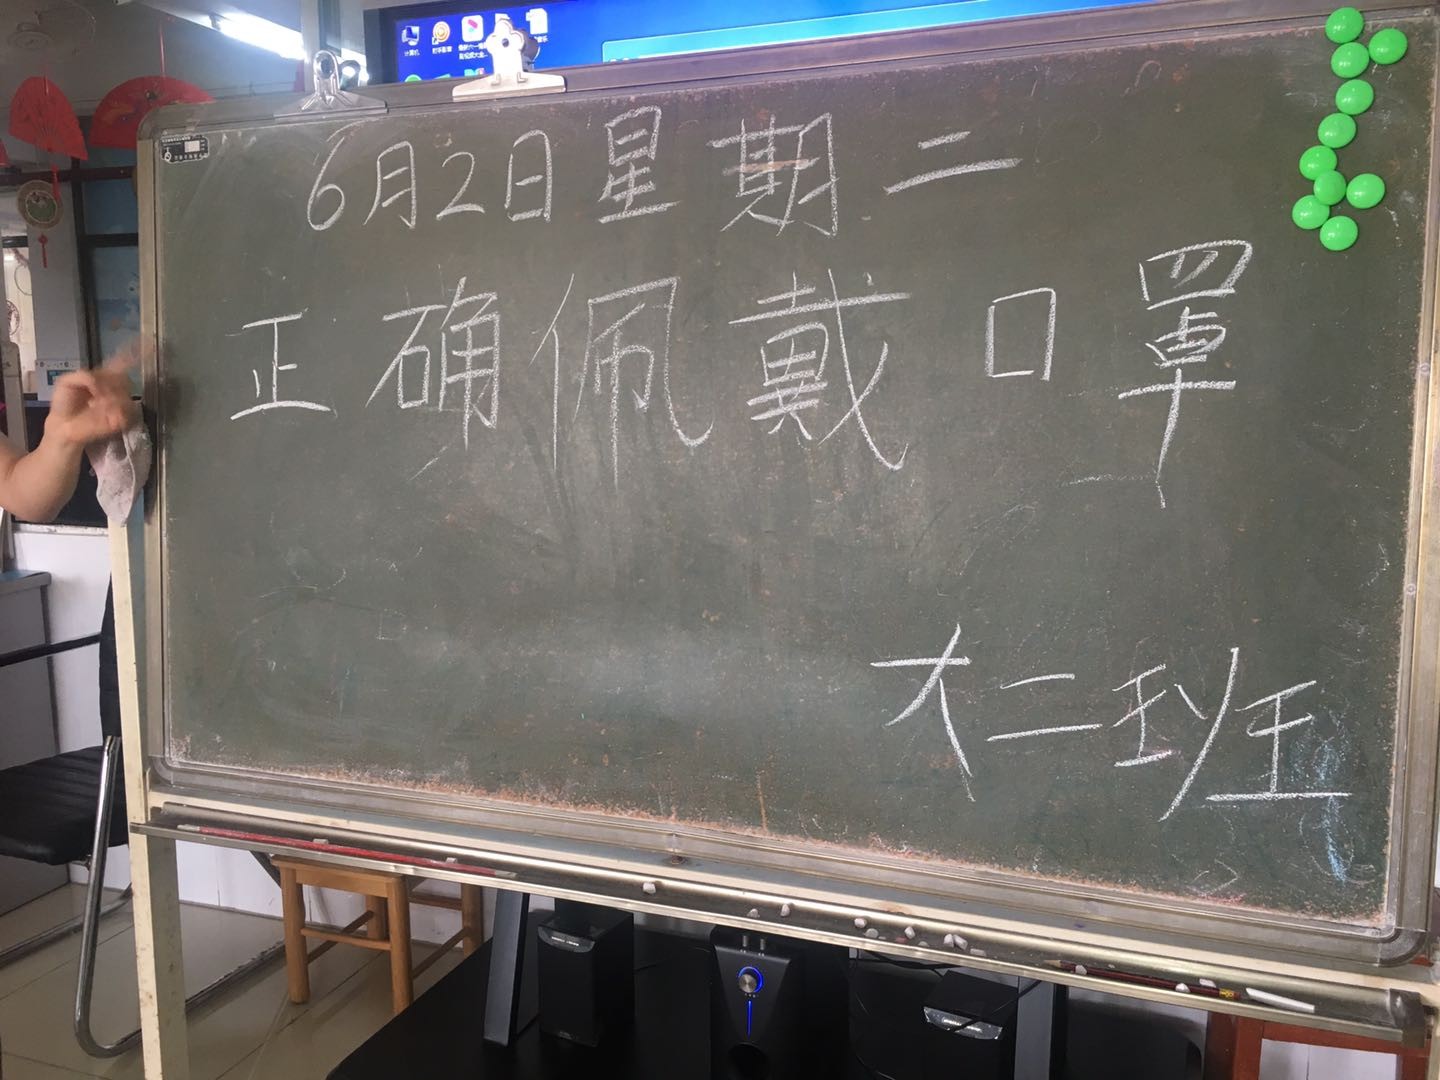 计算机
6月2日星期二
正确佩戴口罩
大二班